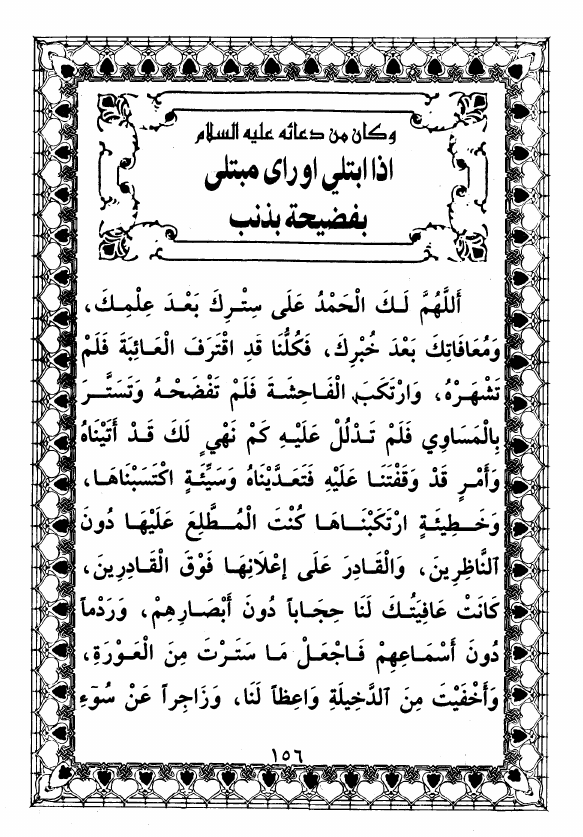 وكان من دعائه عليه السلام
اذا ابتلي او راى مبتلى
بفضيحة بذنب
أَللَّهُمَّ لَكَ الْحَمْدُ عَلَى سِتْرِكَ بَعْدَ عِلْمِكَ،
وَمُعَافَاتِكَ بَعْدَ خُبْرِكَ، فَكُلُّنَا قَدِ اقْتَرَفَ الْعَائِبَةَ فَلَمْ
تَشْهَرْهُ، وَارْتَكَبَ الْفَاحِشَةَ فَلَمْ تَفْضَحْهُ وَتَسَتَّرَ
بِالْمَسَاوِي فَلَمْ تَدْلُلْ عَلَيْهِ كَمْ نَهْيٍ لَكَ قَدْ أَتَيْنَاهُ
وَأَمْرٍ قَدْ وَقَفْتَنَا عَلَيْهِ فَتَعَدَّيْنَاهُ وَسَيِّئَةٍ اكْتَسَبْنَاهَا،
وَخَطِيئَةٍ ارْتَكَبْنَاهَا كُنْتَ الْمُطَّلِعَ عَلَيْهَا دُونَ
النَّاظِرِينَ، وَالْقَادِرَ عَلَى إعْلَانِهَا فَوْقَ الْقَادِرِينَ،
كَانَتْ عَافِيَتُكَ لَنَا حِجَاباً دُونَ أَبْصَارِهِمْ، وَرَدْماً
دُونَ أَسْمَاعِهِمْ فَاجْعَلْ مَا سَتَرْتَ مِنَ الْعَوْرَةِ،
وَأَخْفَيْتَ مِنَ الدَّخِيلَةِ وَاعِظاً لَنَا، وَزَاجِراً عَنْ سُوٓءِ
١٥٦